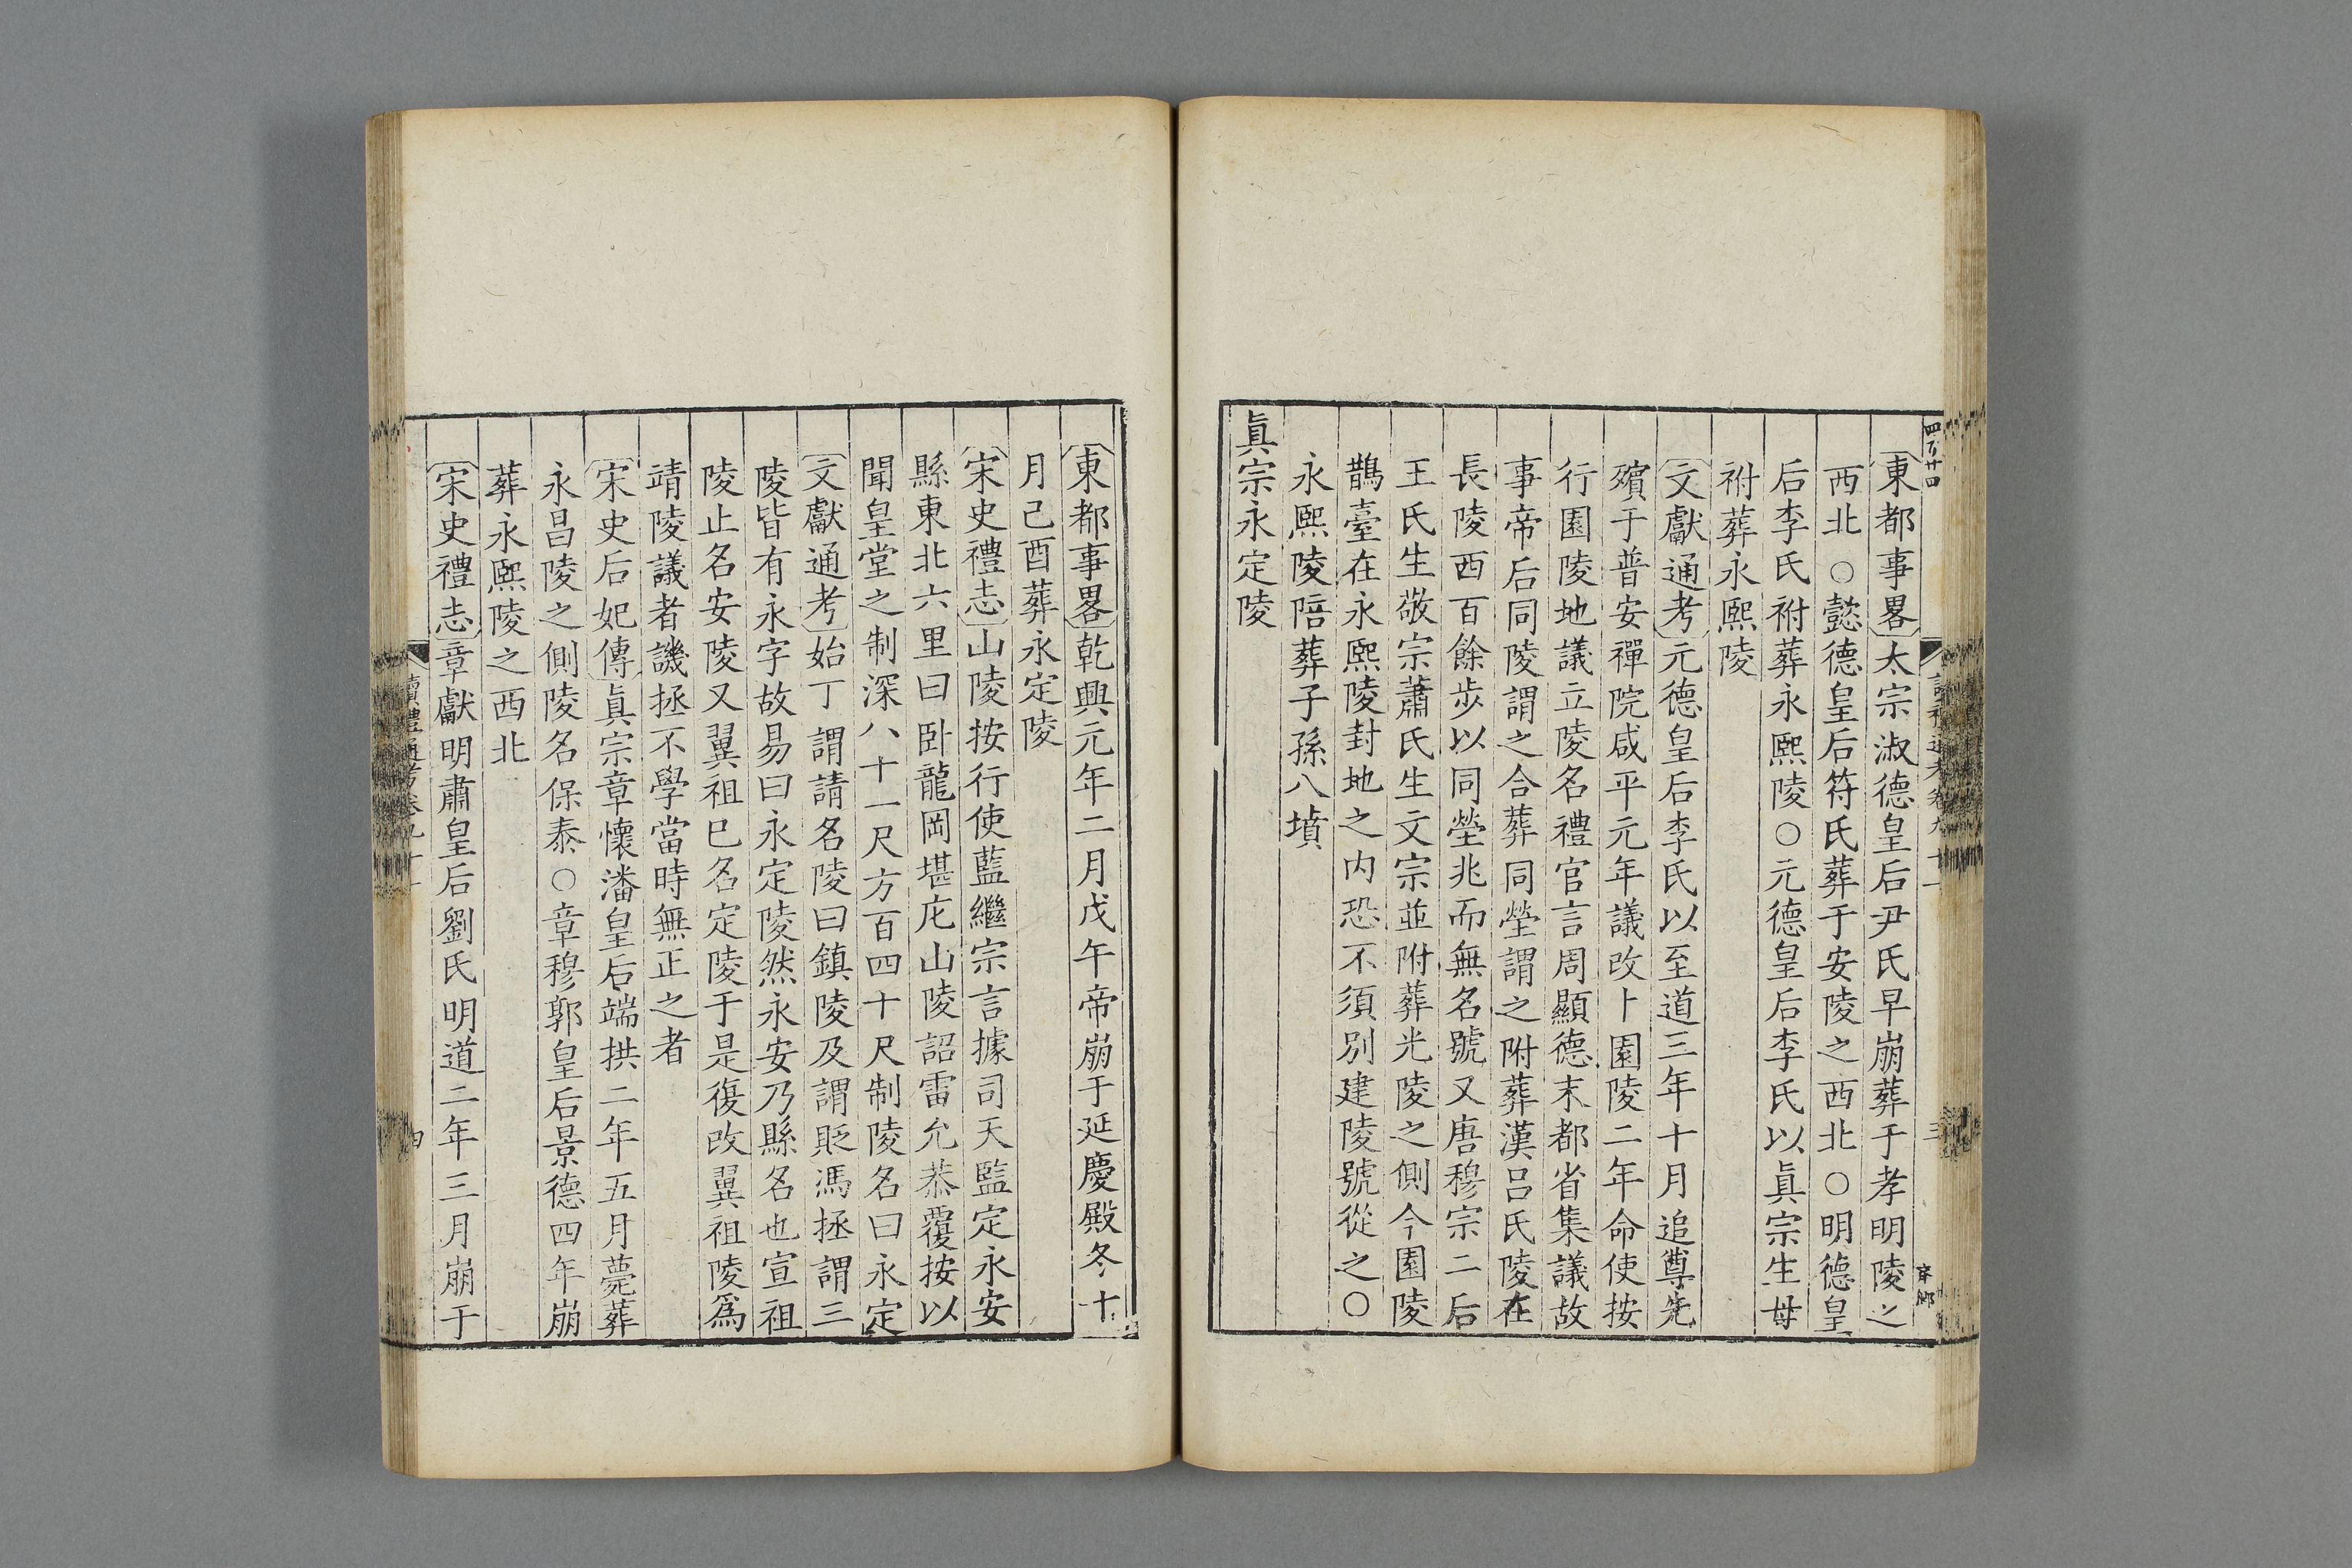 四百廿四
東都事畧太宗淑德皇后尹氏早崩葬于孝明陵之
西北○懿德皇后符氏葬于安陵之西北○明德皇
后李氏祔葬永熙陵○元德皇后李氏以眞宗生母
祔葬永熙陵
文獻通考元德皇后李氏以至道三年十月追尊先
殯于普安禪院咸平元年議改卜園陵二年命使按
行園陵地議立陵名禮官言周顯德末都省集議故
事帝后同陵謂之合葬同塋謂之附葬漢呂氏陵在
長陵西百餘步以同塋兆而無名號又唐穆宗二后
王氏生敬宗蕭氏生文宗並附葬光陵之側今園陵
鵲臺在永熙陵封地之內恐不須別建陵號從之○
永熙陵陪葬子孫八墳
眞宗永定陵
東都事畧乾興元年二月戊午帝崩于延慶殿冬十
月己酉葬永定陵
宋史禮志山陵按行使藍繼宗言據司天監定永安
縣東北六里曰卧龍岡堪庀山陵詔雷允恭覆按以
聞皇堂之制深八十一尺方百四十尺制陵名曰永定
文獻通考始丁謂請名陵曰鎮陵及謂貶馮拯謂三
陵皆有永字故易曰永定陵然永安乃縣名也宣祖
陵止名安陵又翼祖已名定陵于是復改翼祖陵爲
靖陵議者譏拯不學當時無正之者
宋史后妃傳眞宗章懷潘皇后端拱二年五月薨葬
永昌陵之側陵名保泰○章穆郭皇后景德四年崩
葬永熙陵之西北
宋史禮志章獻明肅皇后劉氏明道二年三月崩于
讀禮通考卷九十一
四